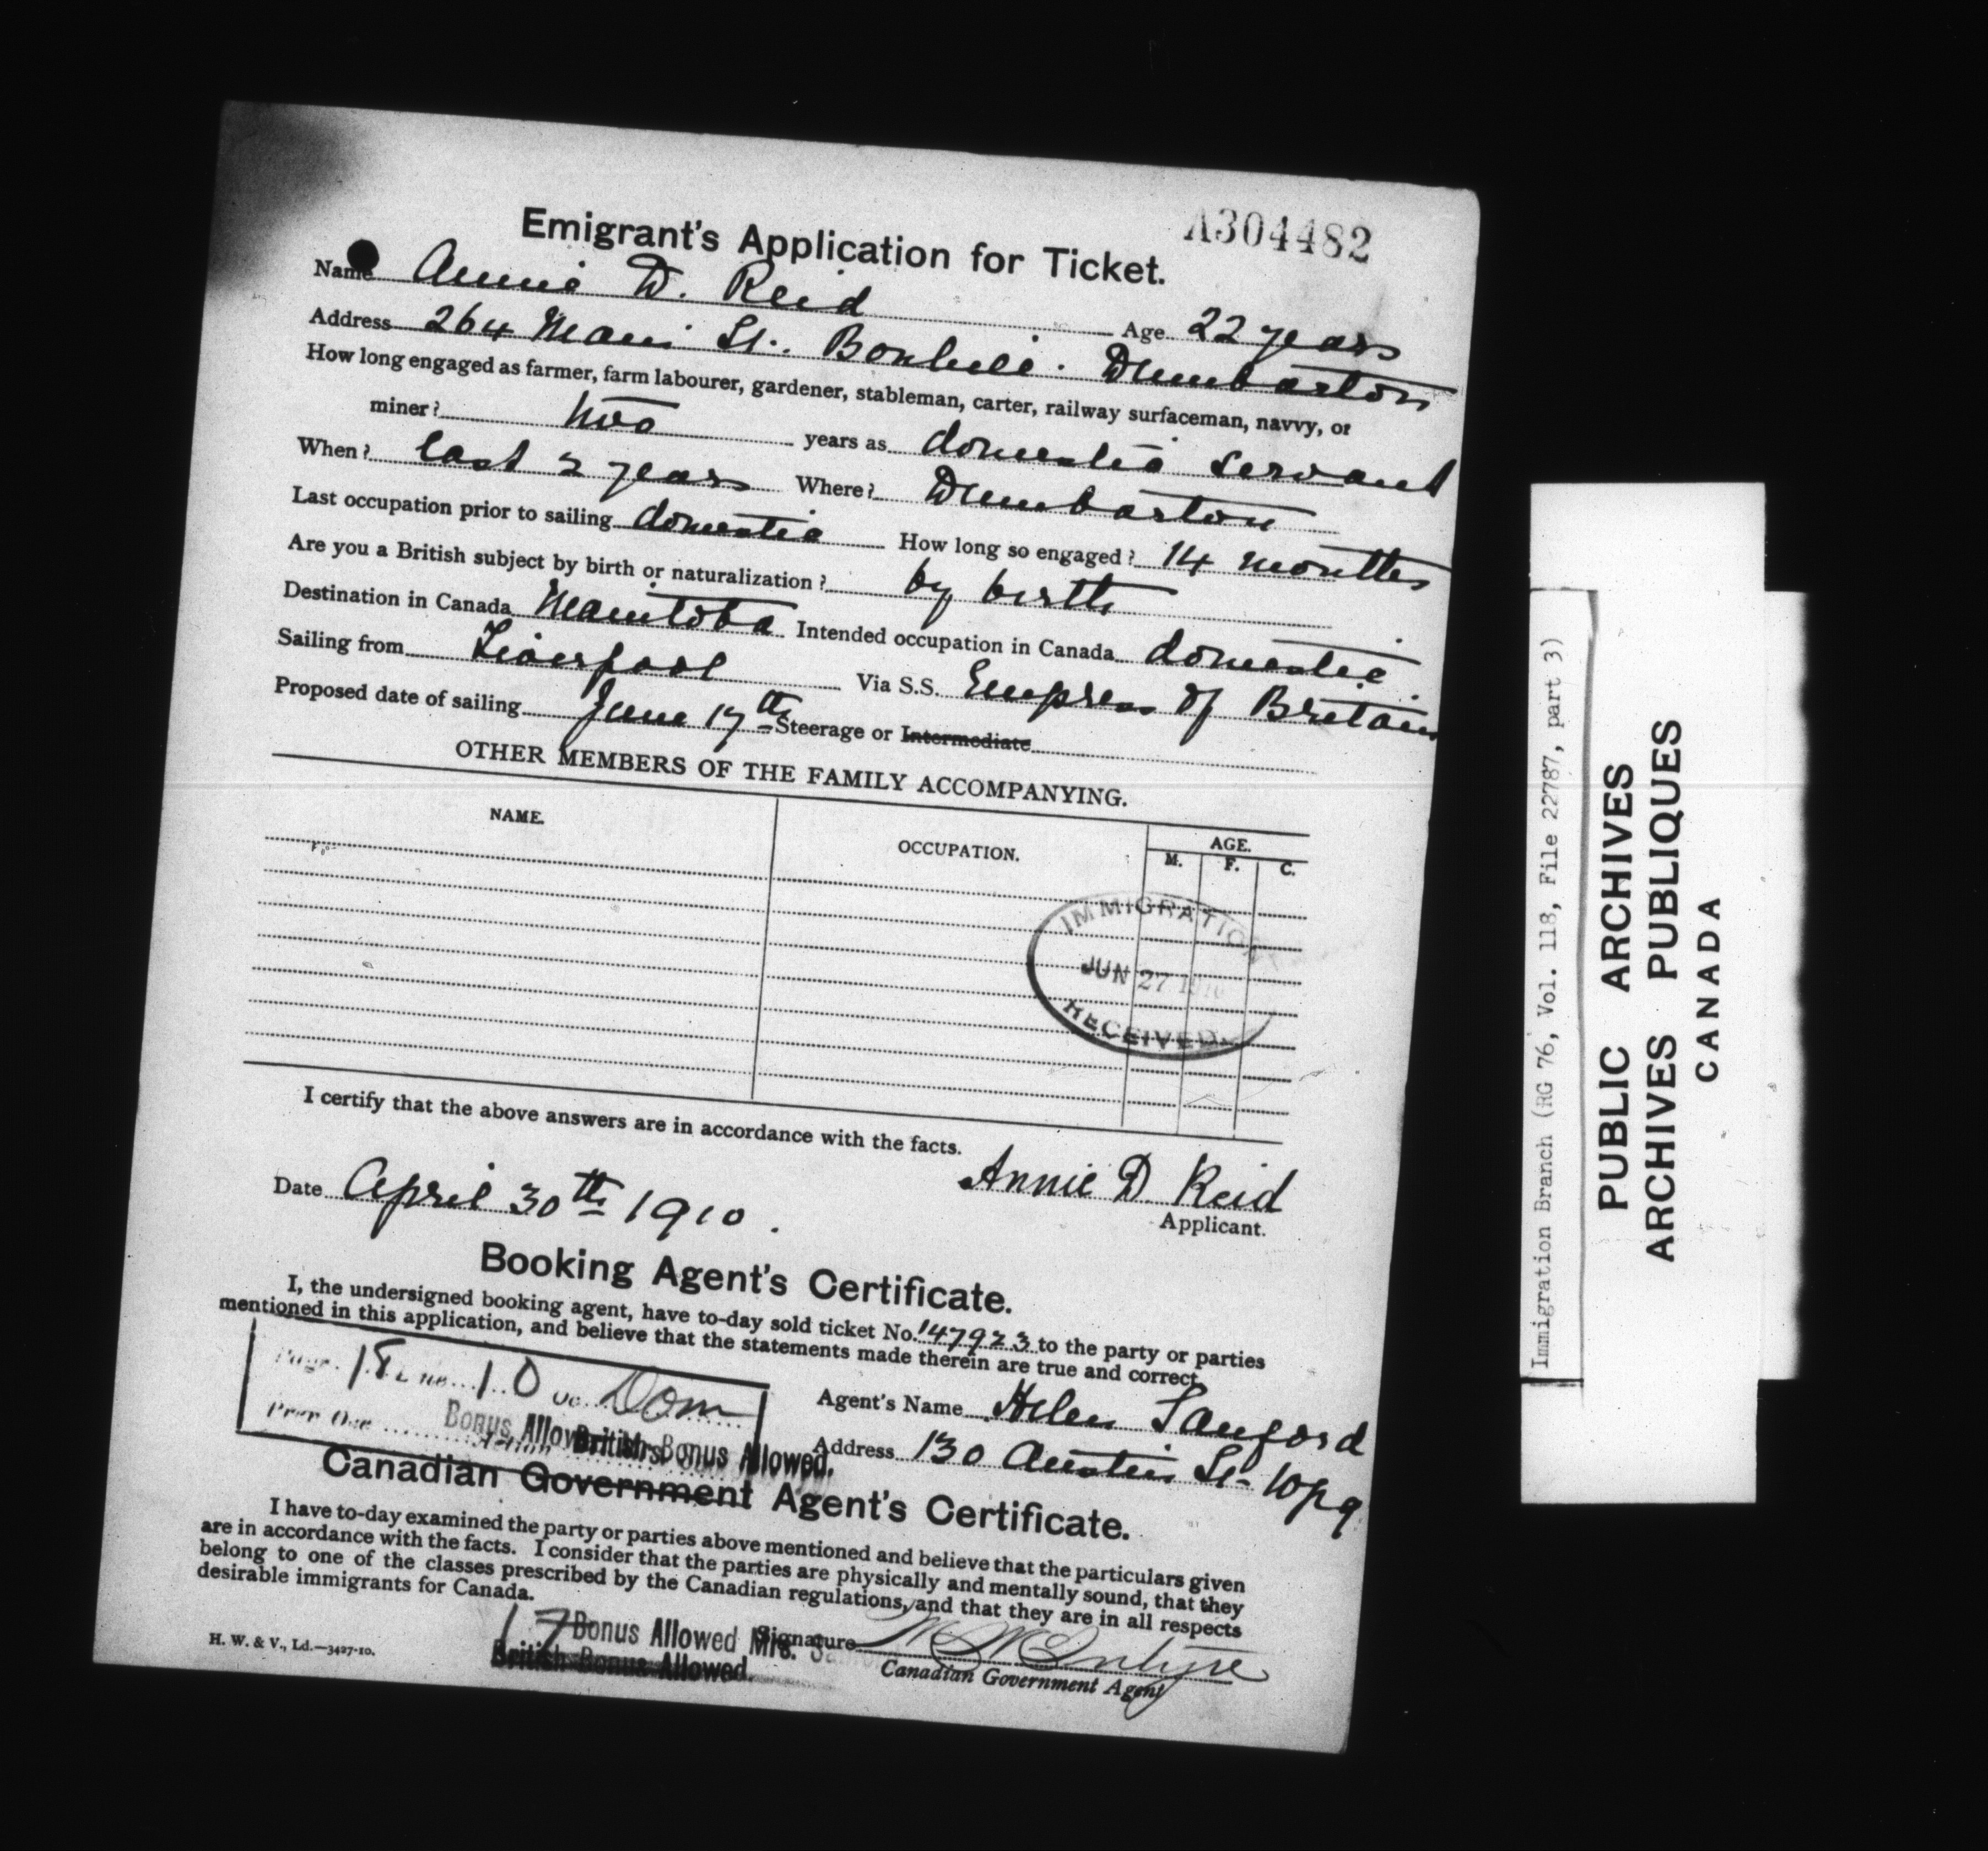 A304482
Emigrant's Application for Ticket.
Name Annie D. Reid Age 22 years
Address 264 Main St. Bonhill. Dumbarton
How long engaged as farmer, farm labourer, gardener, stableman, carter, railway surfaceman, navvy, or
miner? two years as domestic servant
When? last 2 years Where? Dumbarton
Last occupation prior to sailing domestic How long so engaged? 14 months
Are you a British subject by birth or naturalization? by birth
Destination in Canada Manitoba Intended occupation in Canada domestic
Sailing from Liverpool Via S.S. Empress of Britain
Proposed date of sailing June 17th Steerage or Intermediate
OTHER MEMBERS OF THE FAMILY ACCOMPANYING.
NAME. OCCUPATION. AGE.
M. F. C.
IMMIGRATION
JUN 27 1910
RECEIVED
I certify that the above answers are in accordance with the facts.
Annie D. Reid
Date April 30th 1910.
Applicant.
Booking Agent's Certificate.
I, the undersigned booking agent, have to-day sold ticket No. 147923 to the party or parties
mentioned in this application, and believe that the statements made therein are true and correct.
Page 18 Line 10 Oc. Dom
Agent's Name Helen Sanford
Prev Occ
Bonus Allowed Mrs.
British Bonus Allowed.
Address 130 Austin St- Wpg
Canadian Government Agent's Certificate.
I have to-day examined the party or parties above mentioned and believe that the particulars given
are in accordance with the facts. I consider that the parties are physically and mentally sound, that they
belong to one of the classes prescribed by the Canadian regulations, and that they are in all respects
desirable immigrants for Canada.
17 Bonus Allowed Mrs. Sanford
Signature W McIntyre
British Bonus Allowed.
Canadian Government Agent
H. W. & V., Ld.—3427-10.
Immigration Branch (RG 76, Vol. 118, File 22787, part 3)
PUBLIC ARCHIVES
ARCHIVES PUBLIQUES
CANADA